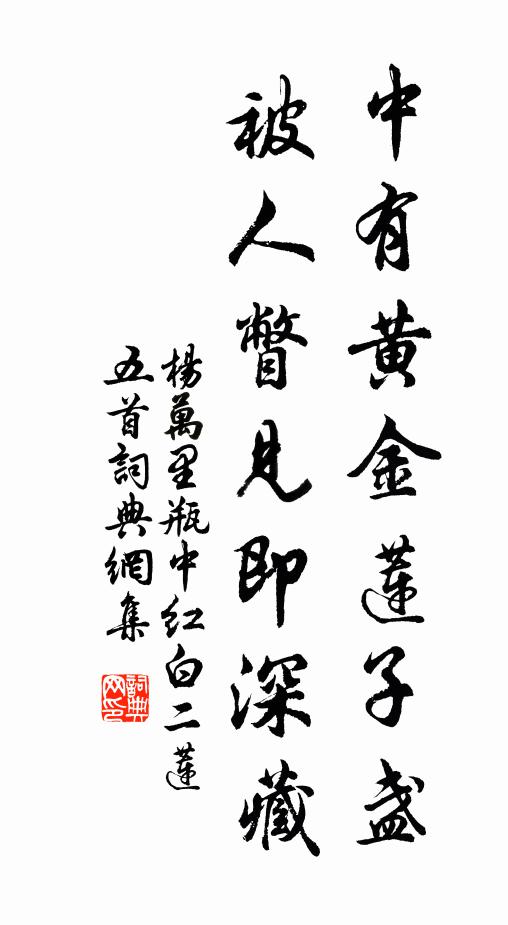 中有黃金蓮子盞
被人瞥見即深藏
楊萬里瓶中紅白二蓮
五首詞典網集
詞典
网印